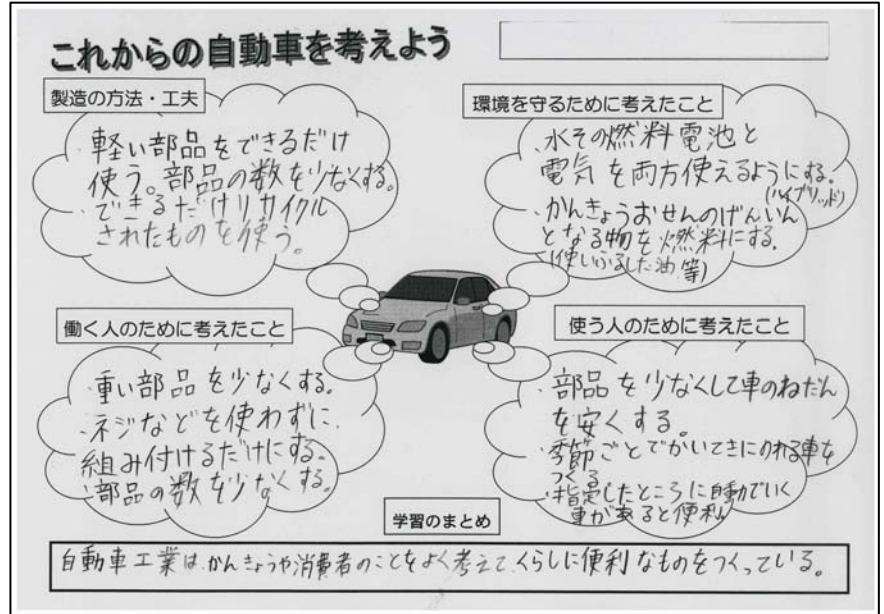 これからの自動車を考えよう
製造の方法・工夫
・軽い部品をできるだけ
使う。部品の数を少なくする。
・できるだけリサイクル
されたものを使う。
環境を守るために考えたこと
・水その燃料電池と
電気を両方使えるようにする。
(ハイブリッド)
・かんきょうおせんのげんいん
となる物を燃料にする。
(使いふるした油等)
働く人のために考えたこと
・重い部品を少なくする。
・ネジなどを使わずに、
組み付けるだけにする。
・部品の数を少なくする。
使う人のために考えたこと
・部品を少なくして車のねだん
を安くする。
・季節ごとでかいてきにのれる車を
つくる
・指定したところに自動でいく
車があると便利。
学習のまとめ
自動車工業は、かんきょうや消費者のことをよく考えて、くらしに便利なものをつくっている。